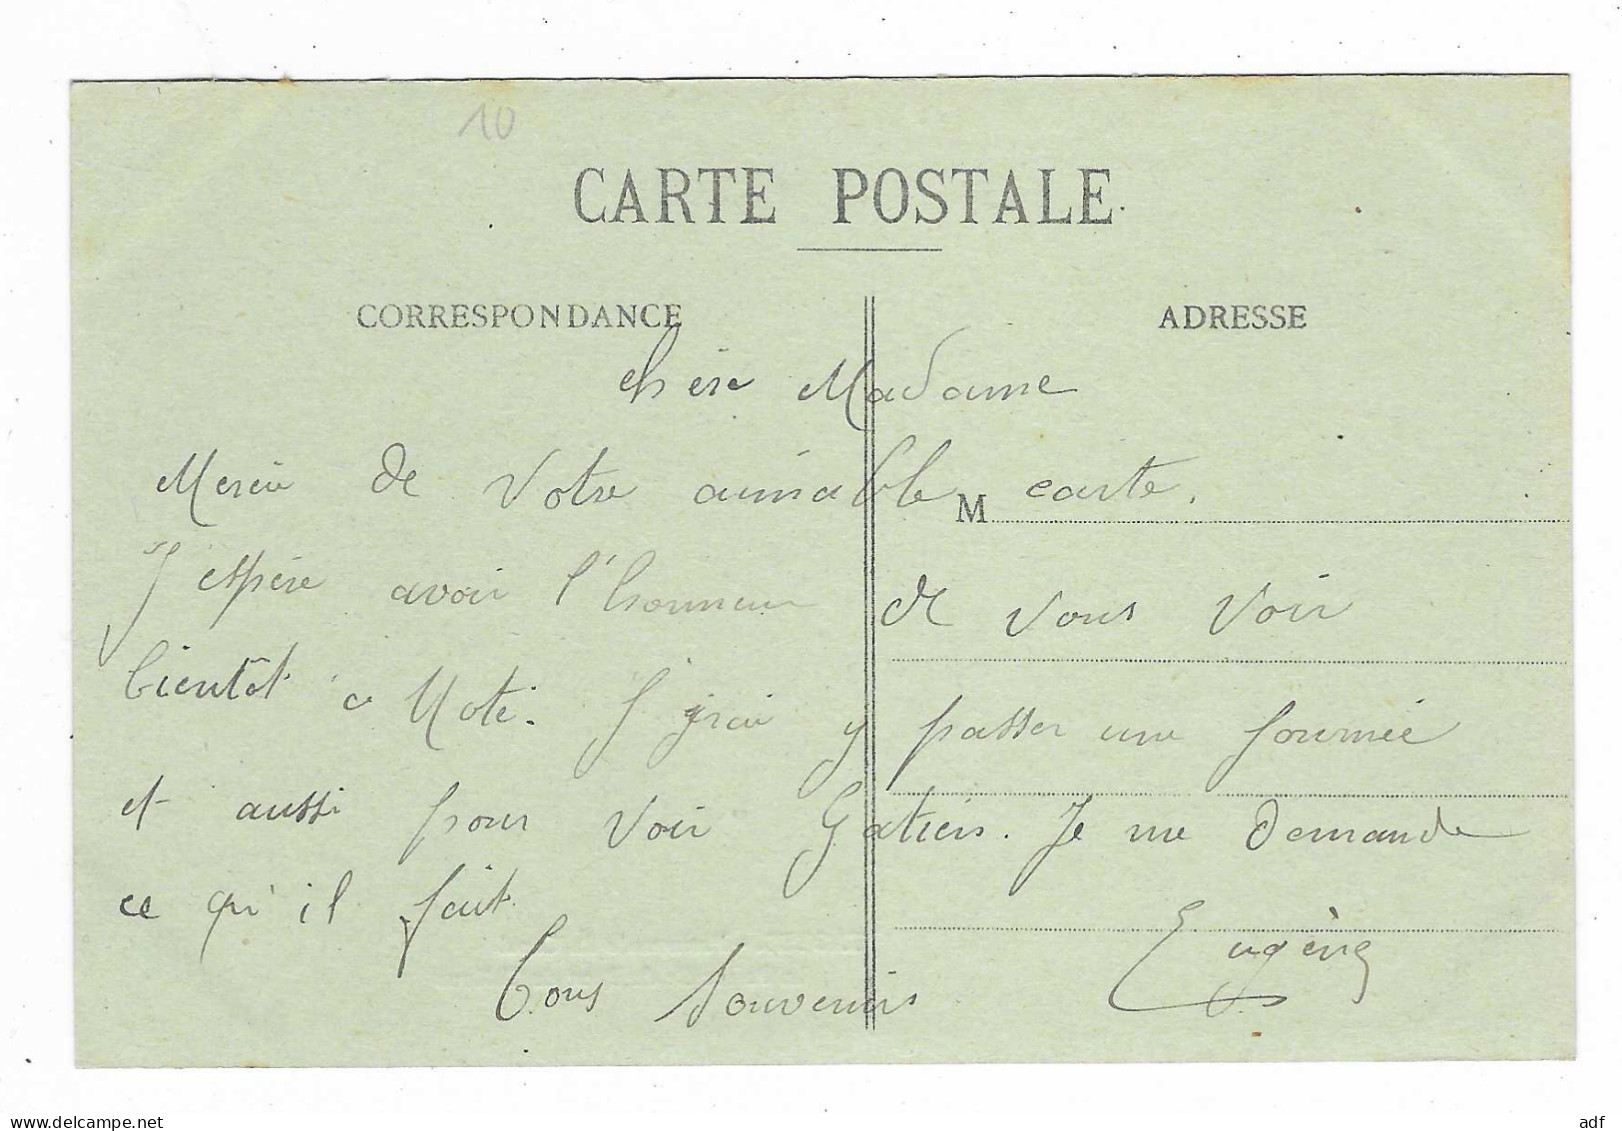 10
CARTE POSTALE
CORRESPONDANCE
ADRESSE
Chère Madame
Merci de Votre aimable carte.
M
J'espère avoir l'honneur de vous voir
bientôt à J'irai y passer une journée
et aussi pour voir Gatien. Je me demande
ce qu'il fait.
Bons Souvenirs
Eugène
adf